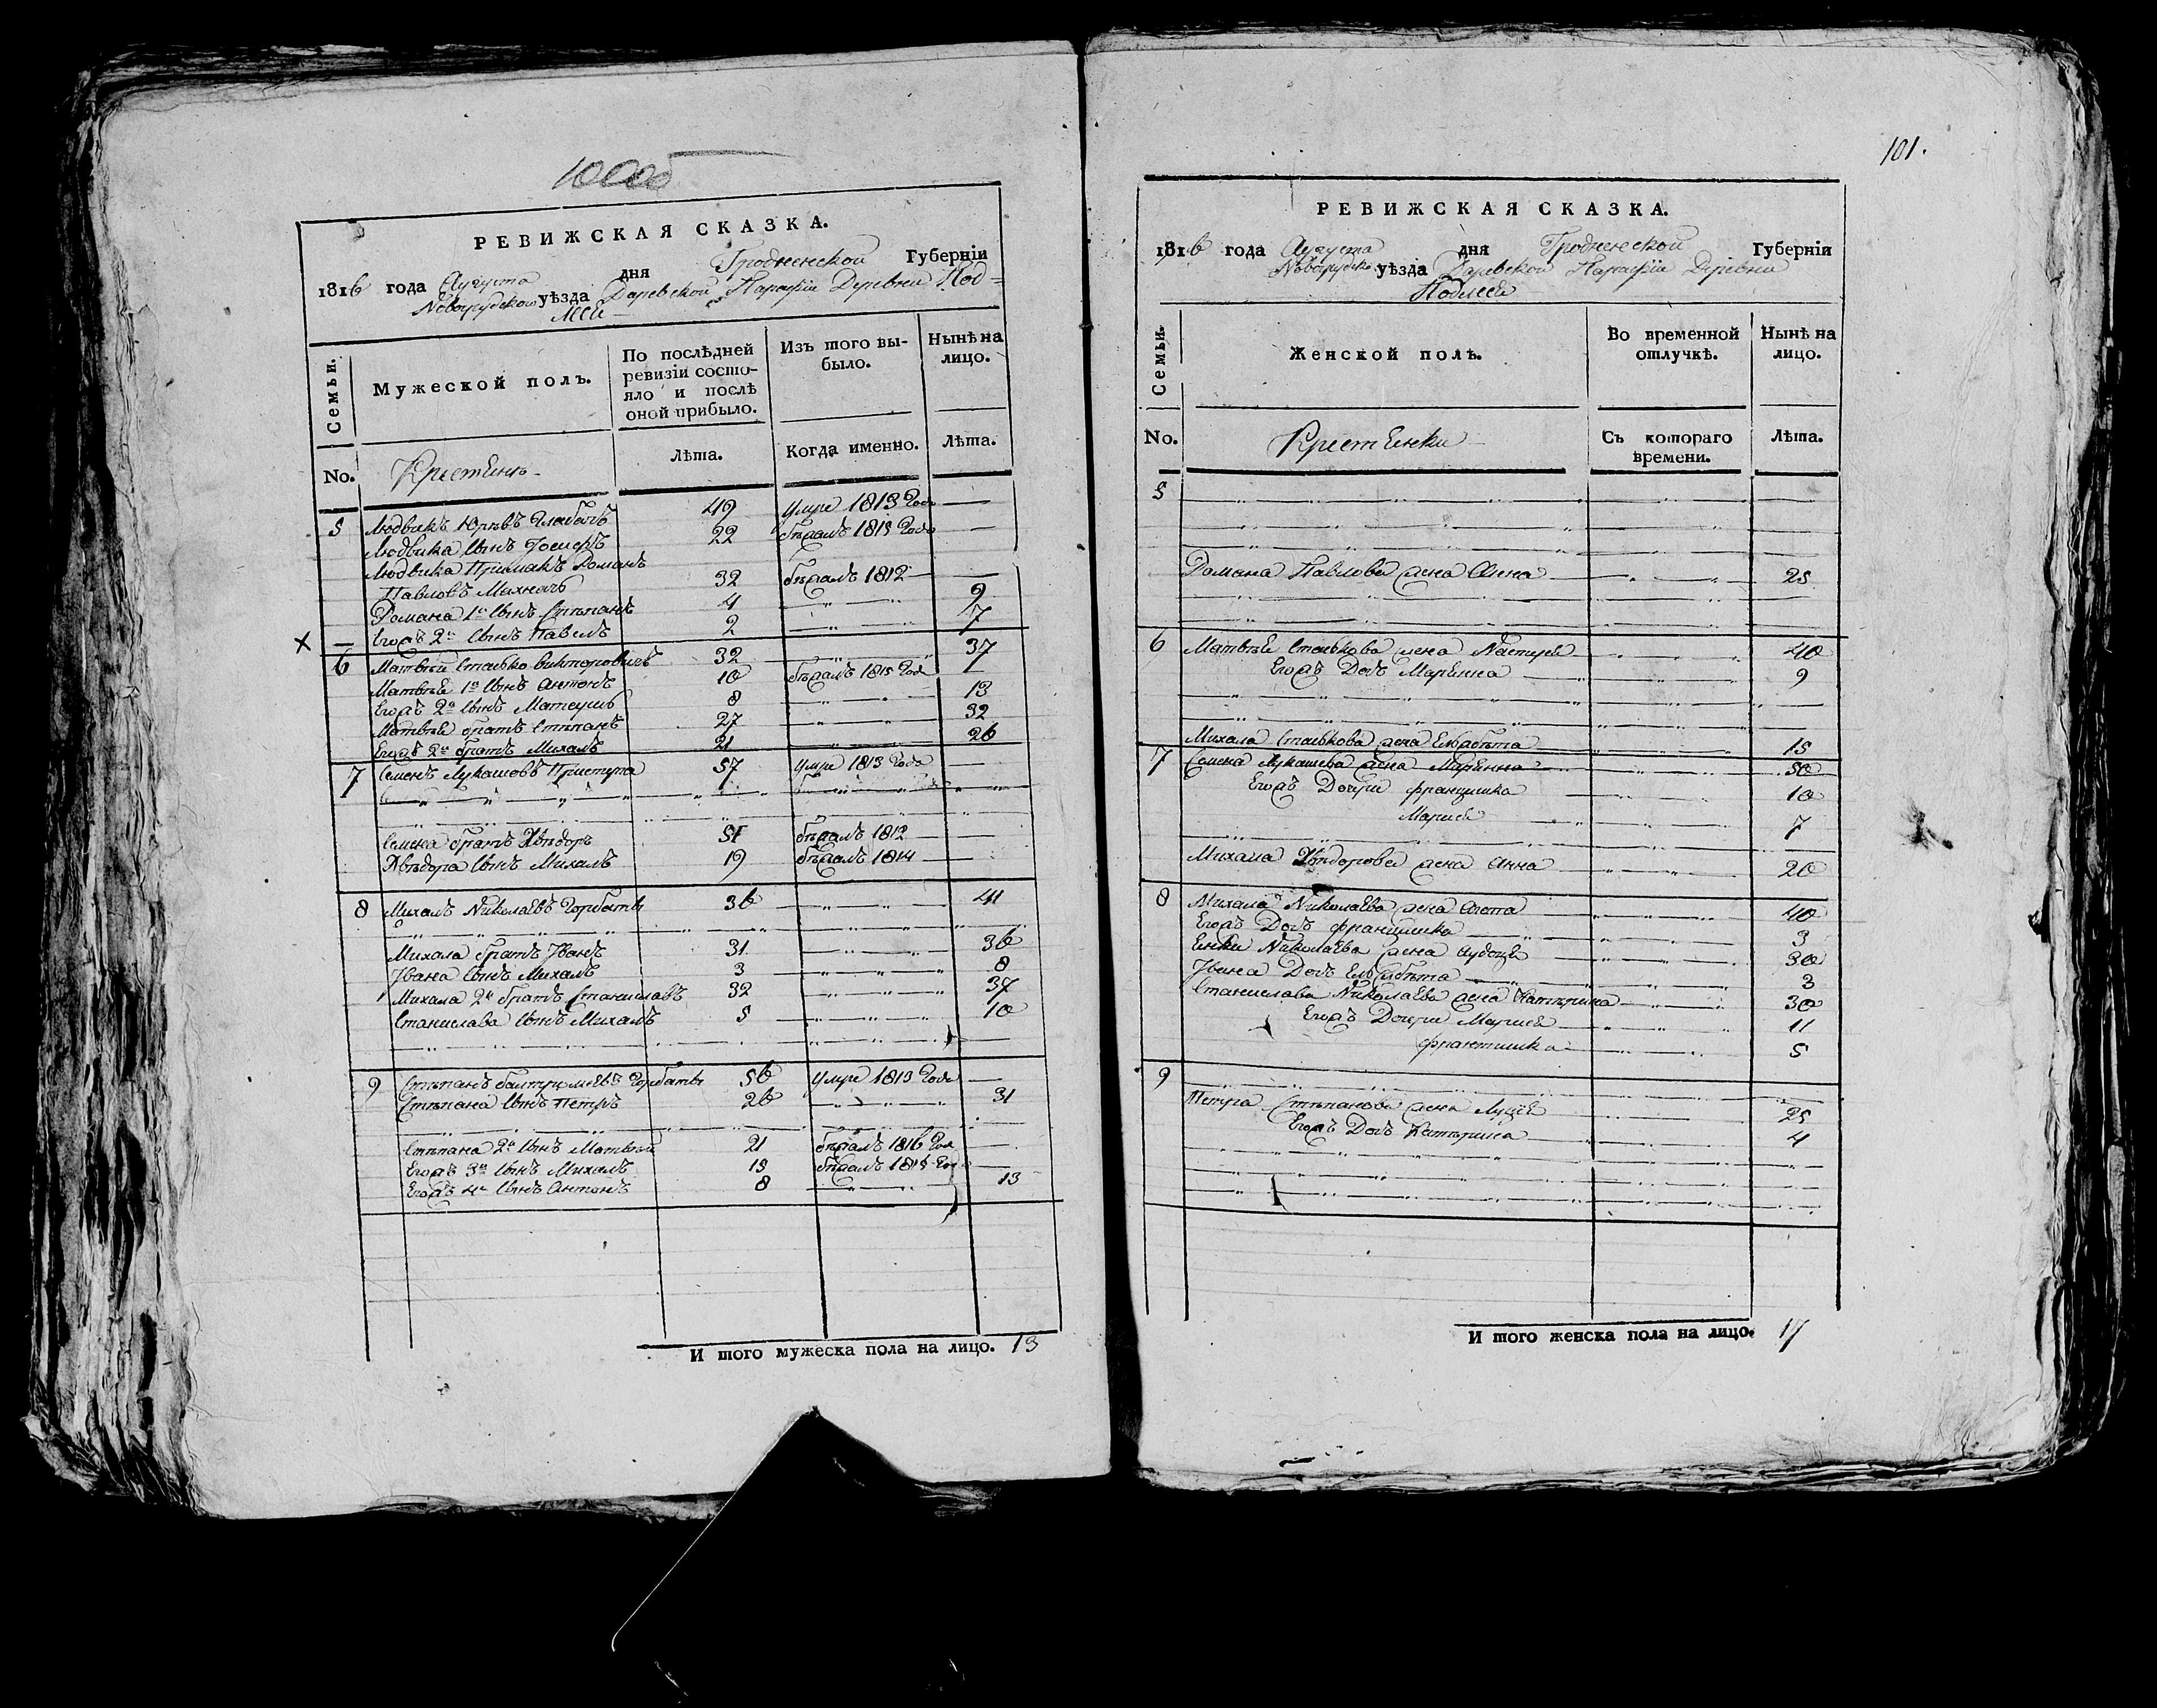 100об
РЕВИЖСКАЯ СКАЗКА.
1816 года Августа дня Гродненской Губерніи
Новогрудского уѣзда Даревской Парафіи Деревни Под=
леси
Семьи.
Мужеской полъ.
По послѣдней ревизіи состояло и послѣ оной прибыло.
Изъ того выбыло.
Нынѣ на лицо.
No. Крестяннъ
Лѣта.
Когда именно.
Лѣта.
5 Людвикъ Юрьвъ 49 умре 1813 Года —
Людвика сынъ Іосифъ 22 бѣжалъ 1815 Года —
Людвика Примакъ Романъ
Павловъ Михначъ 32 бѣжалъ 1812 —
Романа 1й сынъ Стѣпанъ 4 — 9
Егожъ 2й сынъ Павелъ 2 — 7
6 Матвѣй Стасько Викторовичъ 32 — 37
Матвѣя 1й сынъ Антонъ 10 бѣжалъ 1815 Года —
Егожъ 2й сынъ Матеушъ 8 — 13
Матвѣя братъ Стѣпанъ 27 — 32
Егожъ 2й братъ Михалъ 21 — 26
7 Семенъ Лукашовъ Приступа 57 умре 1813 Года —
Семена братъ Хвѣдоръ 51 бѣжалъ 1812 —
Хвѣдора сынъ Михалъ 19 бѣжалъ 1814 —
8 Михалъ Николаевъ Горбатъ 36 — 41
Михала братъ Іванъ 31 — 36
Івана сынъ Михалъ 3 — 8
Михала 2й братъ Станиславъ 32 — 37
Станислава сынъ Михалъ 5 — 10
9 Стѣпанъ Балтромеевъ Горбатъ 56 умре 1813 Года —
Стѣпана сынъ Петръ 26 — 31
Стѣпана 2й сынъ Матвѣй 21 бѣжалъ 1816 Год —
Егожъ 3й сынъ Михалъ 15 бѣжалъ 1815 Год —
Егожъ 4й сынъ Антонъ 8 — 13
И того мужеска пола на лицо. 13
101.
РЕВИЖСКАЯ СКАЗКА.
1816 года Августа дня Гродненской Губерніи
Новогрудско уѣзда Даревской Парафіи Деревни
Подлеси
Семьи.
Женской полъ.
Во временной отлучкѣ.
Нынѣ на лицо.
No. Крестянки
Съ котораго времени.
Лѣта.
5
Романа Павлова жена Анна — 25
6 Матвѣя Сташкова жена Настуся — 40
Егожъ Дочь Маріянна — 9
Михала Сташкова жена Елжбѣта — 15
7 Семена Лукашева жена Маріянна — 50
Егожъ Дочери францишка — 10
Марыя — 7
Михала Хвѣдорова жена Анна — 20
8 Михала Николаева жена Агата — 40
Егожъ Дочь францишка — 3
Николаева жена Аудоція — 30
Івана Дочь Елжбѣта — 3
Станислава Николаева жена Катѣрина — 30
Егожъ Дочери Марыя — 11
франтишка — 5
9
Петра Стѣпанова жена Луцея — 25
Егожъ Дочь Катѣрина — 4
И того женска пола на лицо. 17